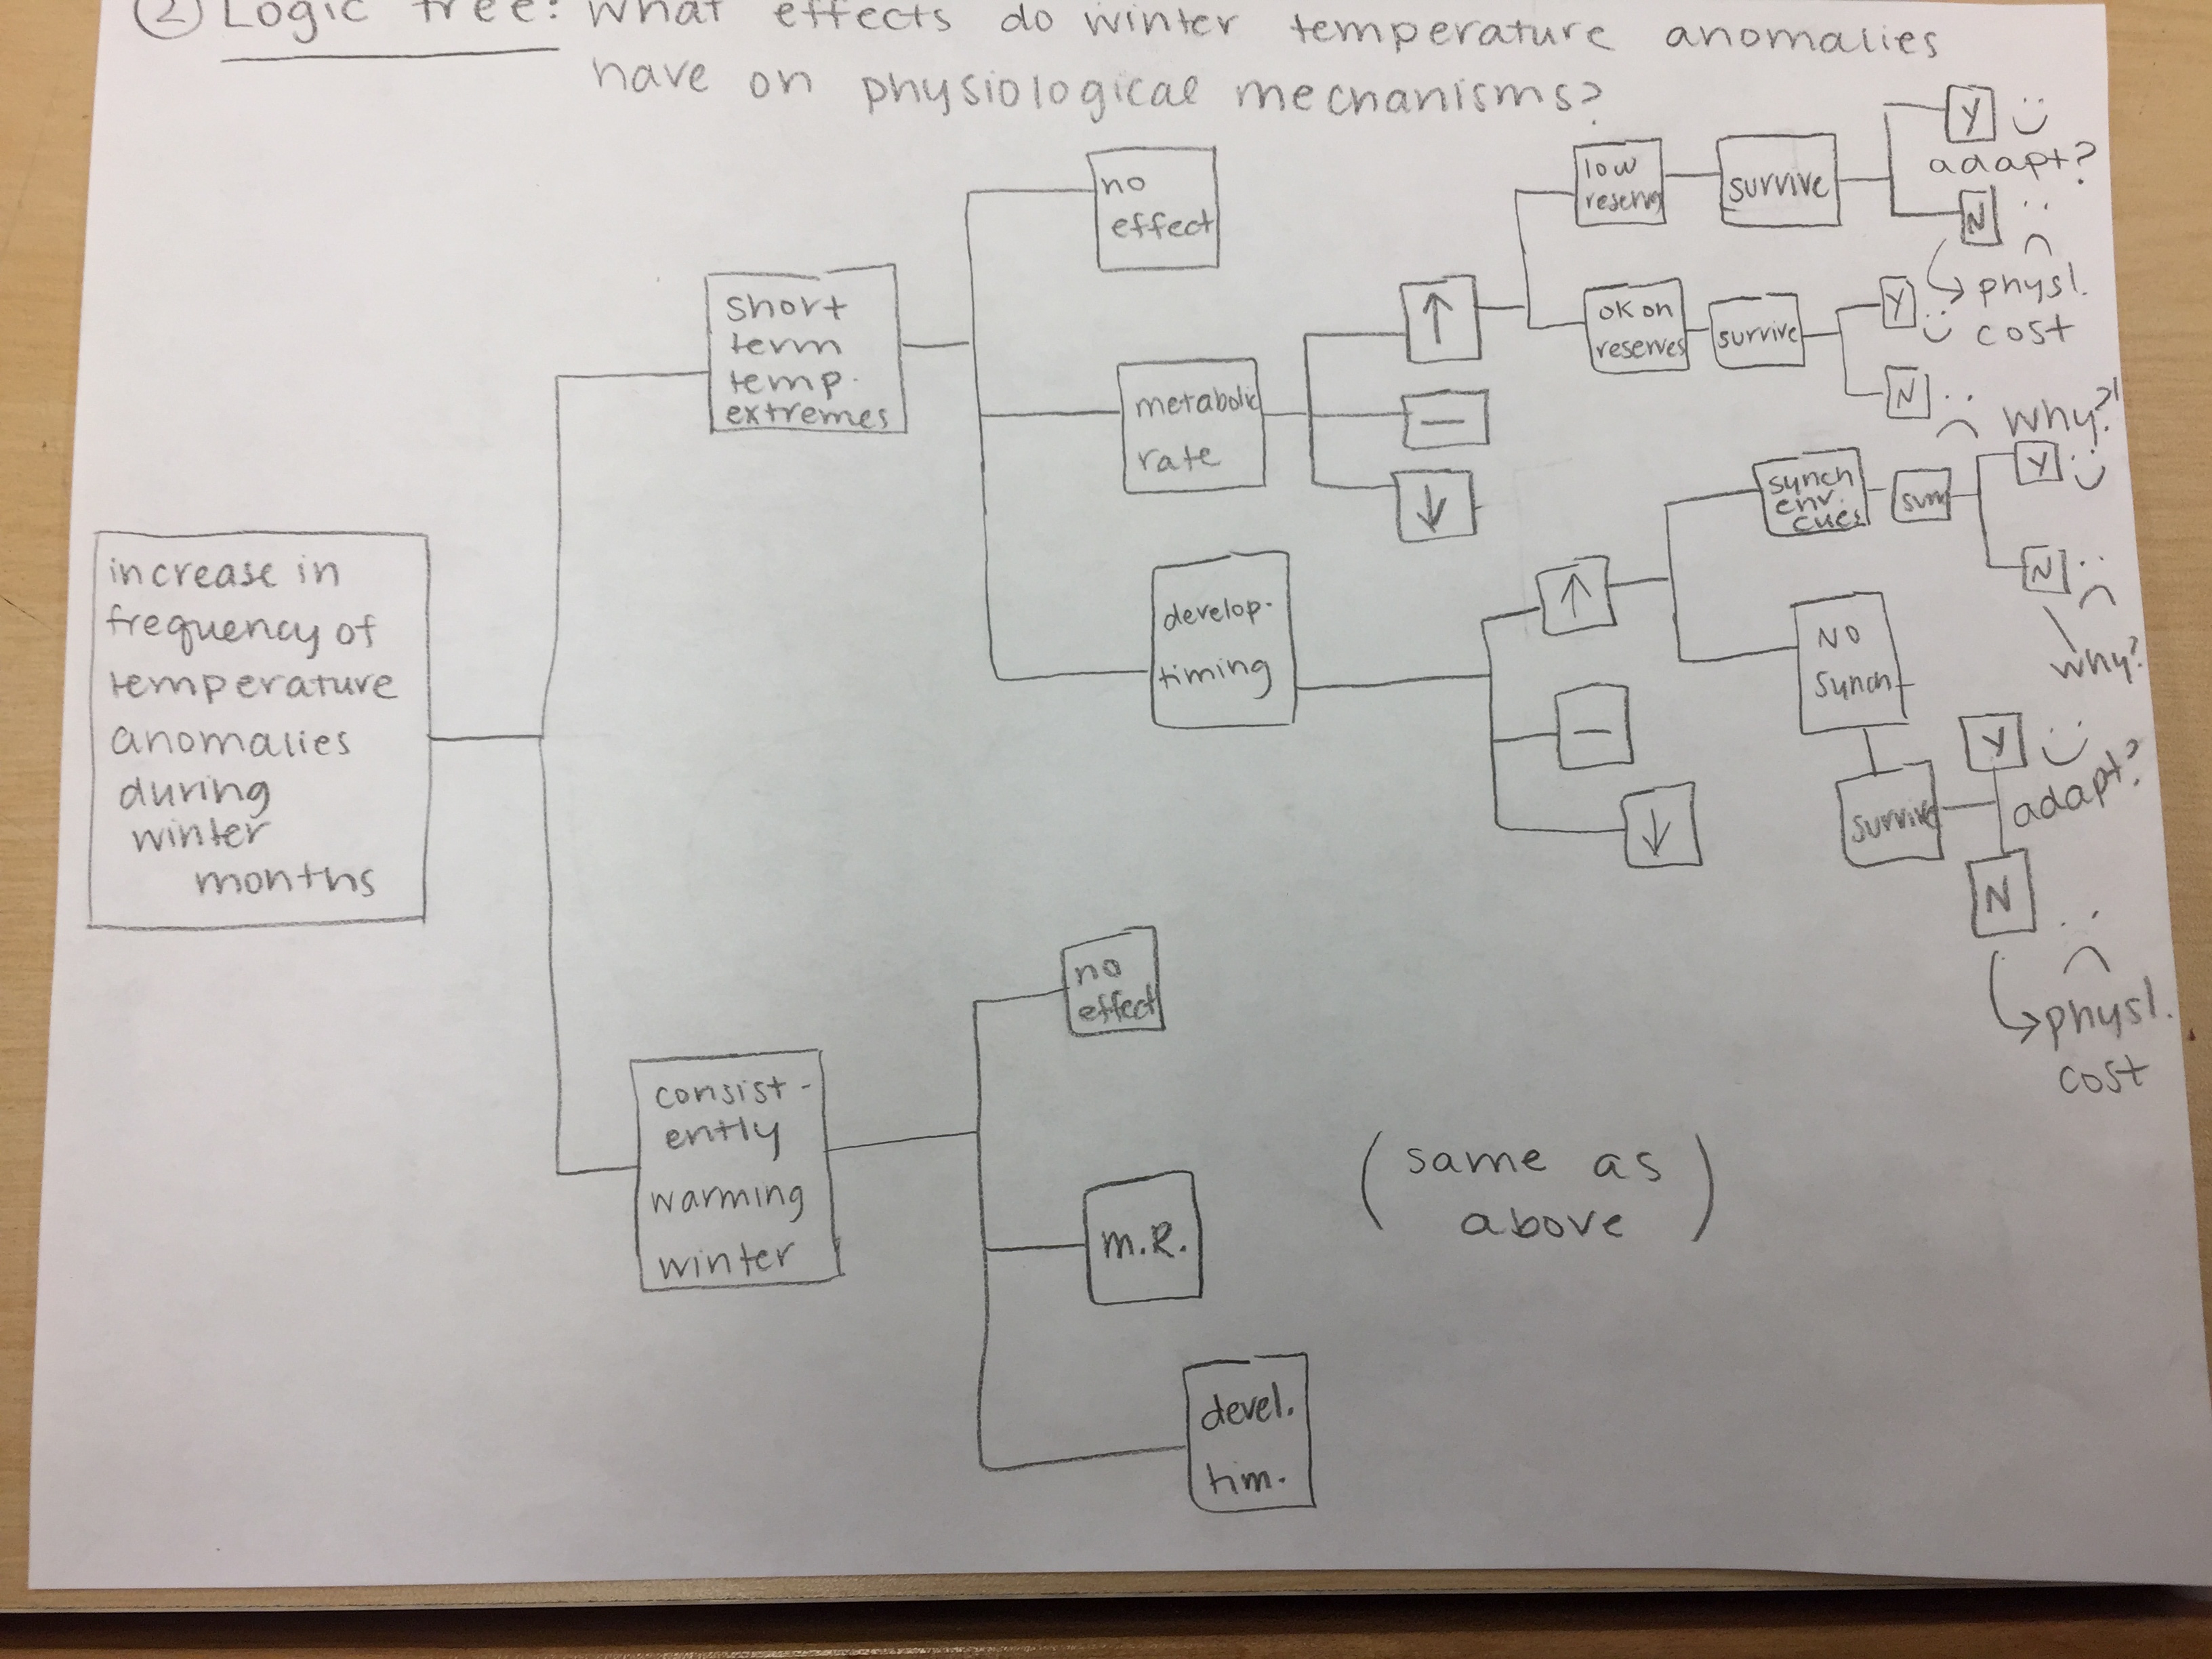 ② Logic tree: What effects do winter temperature anomalies
have on physiological mechanisms?
increase in
frequency of
temperature
anomalies
during
winter
months
short
term
temp.
extremes
no
effect
metabolic
rate
↑
low
reserv
survive
Y :)
adapt?
N :(
→ physl.
cost
ok on
reserves
survive
Y :)
N :( why?!
—
↓
develop.
timing
↑
synch
env.
cues
surv
Y :)
N :(
why?
NO
synch
survive
Y :)
adapt?
N :(
→ physl.
cost
—
↓
consist-
ently
warming
winter
no
effect
m.R.
devel.
tim.
(same as
above)